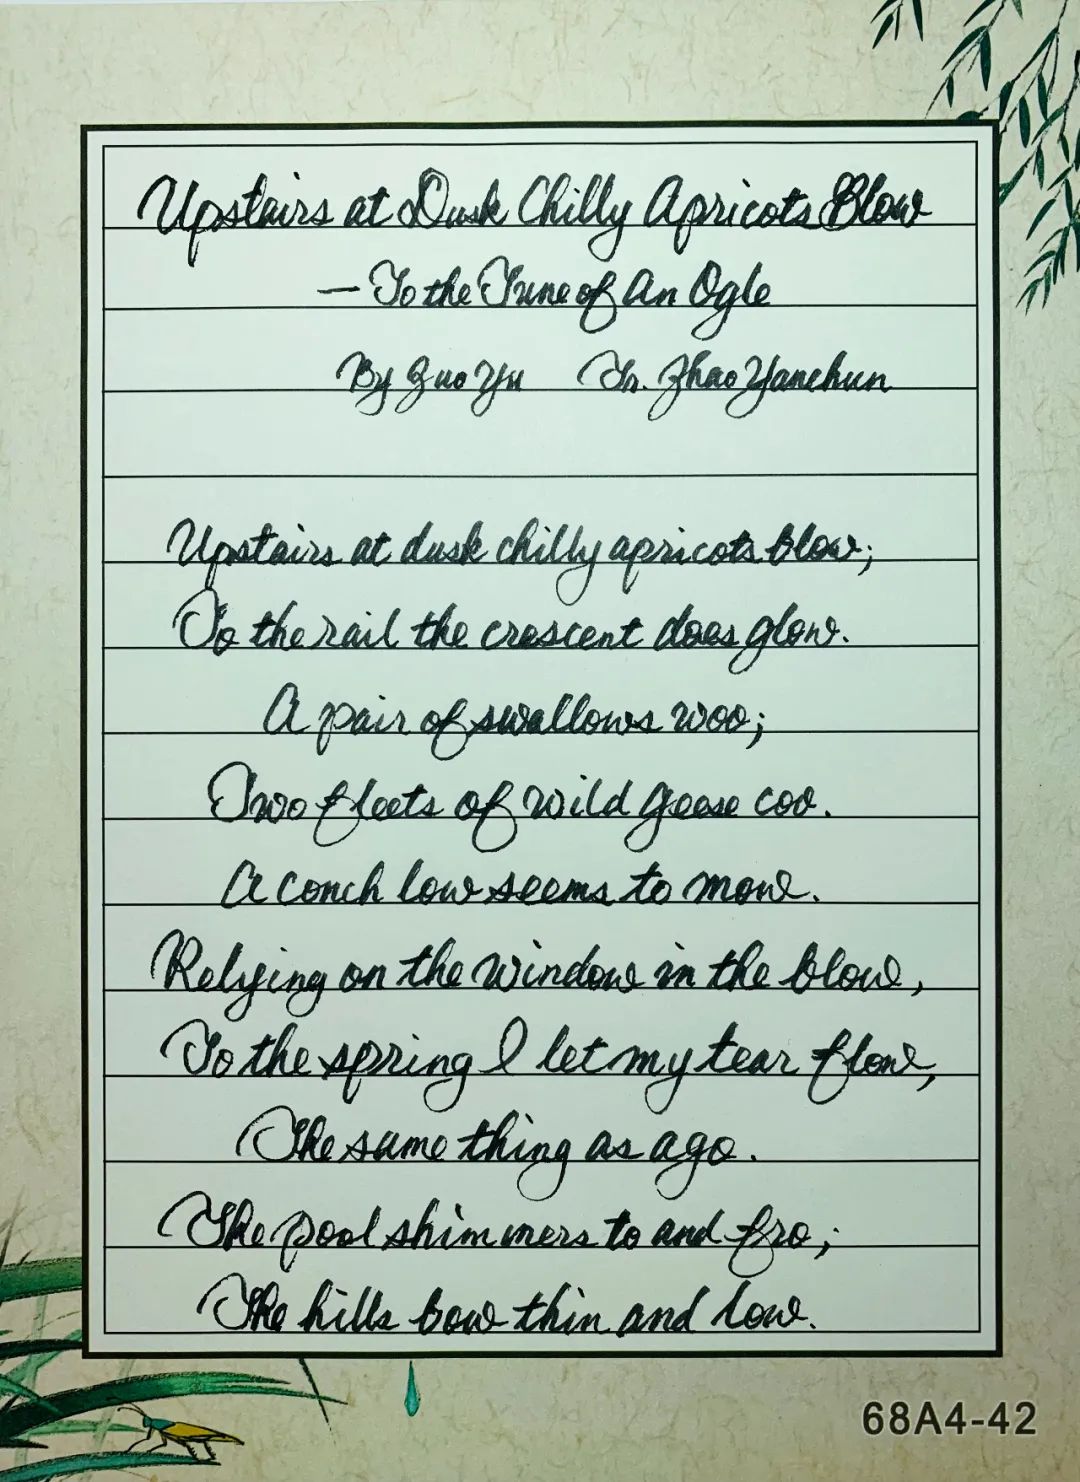 Upstairs at Dusk Chilly Apricots Blow
— To the Tune of An Ogle
By Guo Yu Tr. Zhao Yanchun
Upstairs at dusk chilly apricots blow;
To the rail the crescent does glow.
A pair of swallows woo;
Two fleets of wild geese coo.
A conch low seems to mow.
Relying on the window in the blow,
To the spring I let my tear flow,
The same thing as ago.
The pool shimmers to and fro;
The hills bow thin and low.
68A4-42